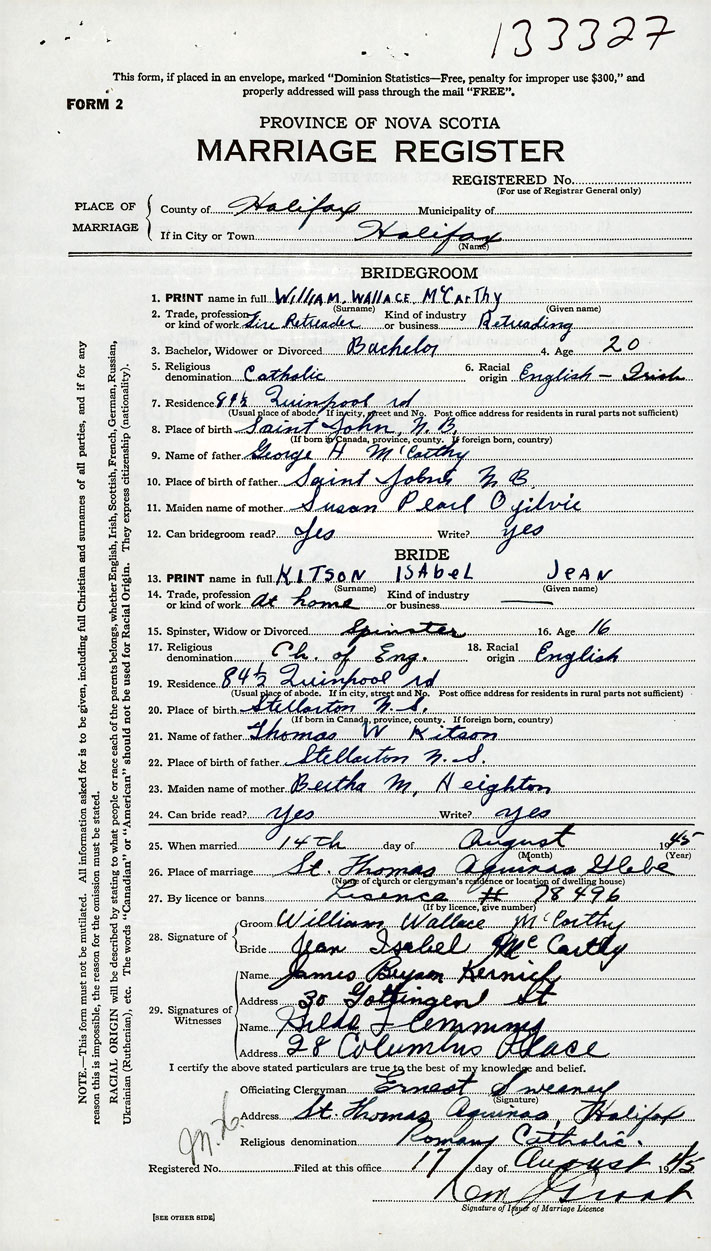 133327
This form, if placed in an envelope, marked "Dominion Statistics—Free, penalty for improper use $300," and
properly addressed will pass through the mail "FREE".
FORM 2
PROVINCE OF NOVA SCOTIA
MARRIAGE REGISTER
REGISTERED No.
(For use of Registrar General only)
PLACE OF MARRIAGE
County of Halifax Municipality of
If in City or Town Halifax
(Name)
BRIDEGROOM
1. PRINT name in full WilliAM. WALLACE McCarThy
(Surname) (Given name)
2. Trade, profession or kind of work Tire Retreader Kind of industry or business Retreading
3. Bachelor, Widower or Divorced Bachelor 4. Age 20
5. Religious denomination Catholic 6. Racial origin English - Irish
7. Residence Quinpool rd
(Usual place of abode. If in city, street and No. Post office address for residents in rural parts not sufficient)
8. Place of birth Saint John, N.B.
(If born in Canada, province, county. If foreign born, country)
9. Name of father George H McCarthy
10. Place of birth of father Saint John N B.
11. Maiden name of mother Susan Pearl Ogilvie
12. Can bridegroom read? Yes Write? yes
BRIDE
13. PRINT name in full KITSON ISAbeL JeAN
(Surname) (Given name)
14. Trade, profession or kind of work at home Kind of industry or business —
15. Spinster, Widow or Divorced Spinster 16. Age 16
17. Religious denomination Ch. of Eng. 18. Racial origin English
19. Residence 84½ Quinpool rd
(Usual place of abode. If in city, street and No. Post office address for residents in rural parts not sufficient)
20. Place of birth Stellarton N.S.
(If born in Canada, province, county. If foreign born, country)
21. Name of father Thomas W Kitson
22. Place of birth of father Stellarton N.S.
23. Maiden name of mother Bertha M, Heighton
24. Can bride read? yes Write? yes
25. When married 14th day of August 1945
(Month) (Year)
26. Place of marriage St. Thomas Aquinas Glebe
(Name of church or clergyman's residence or location of dwelling house)
27. By licence or banns Lisence # 78496
(If by licence, give number)
28. Signature of
Groom William Wallace McCarthy
Bride Jean Isabel McCarthy
29. Signatures of Witnesses
Name James Bryson
Address 30 Gottingen St
Name Hilda Flemming
Address 28 Columbus Place
I certify the above stated particulars are true to the best of my knowledge and belief.
Officiating Clergyman Ernest Sweeney
(Signature)
Address St. Thomas Aquinas, Halifax
Religious denomination Roman Catholic.
Registered No. Filed at this office 17 day of August 1945
Signature of Issuer of Marriage Licence
[SEE OTHER SIDE]
NOTE.—This form must not be mutilated. All information asked for is to be given, including full Christian and surnames of all parties, and if for any
reason this is impossible, the reason for the omission must be stated.
RACIAL ORIGIN will be described by stating to what people or race each of the parents belongs, whether English, Irish, Scottish, French, German, Russian,
Ukrainian (Ruthenian), etc. The words "Canadian" or "American" should not be used for Racial Origin. They express citizenship (nationality).